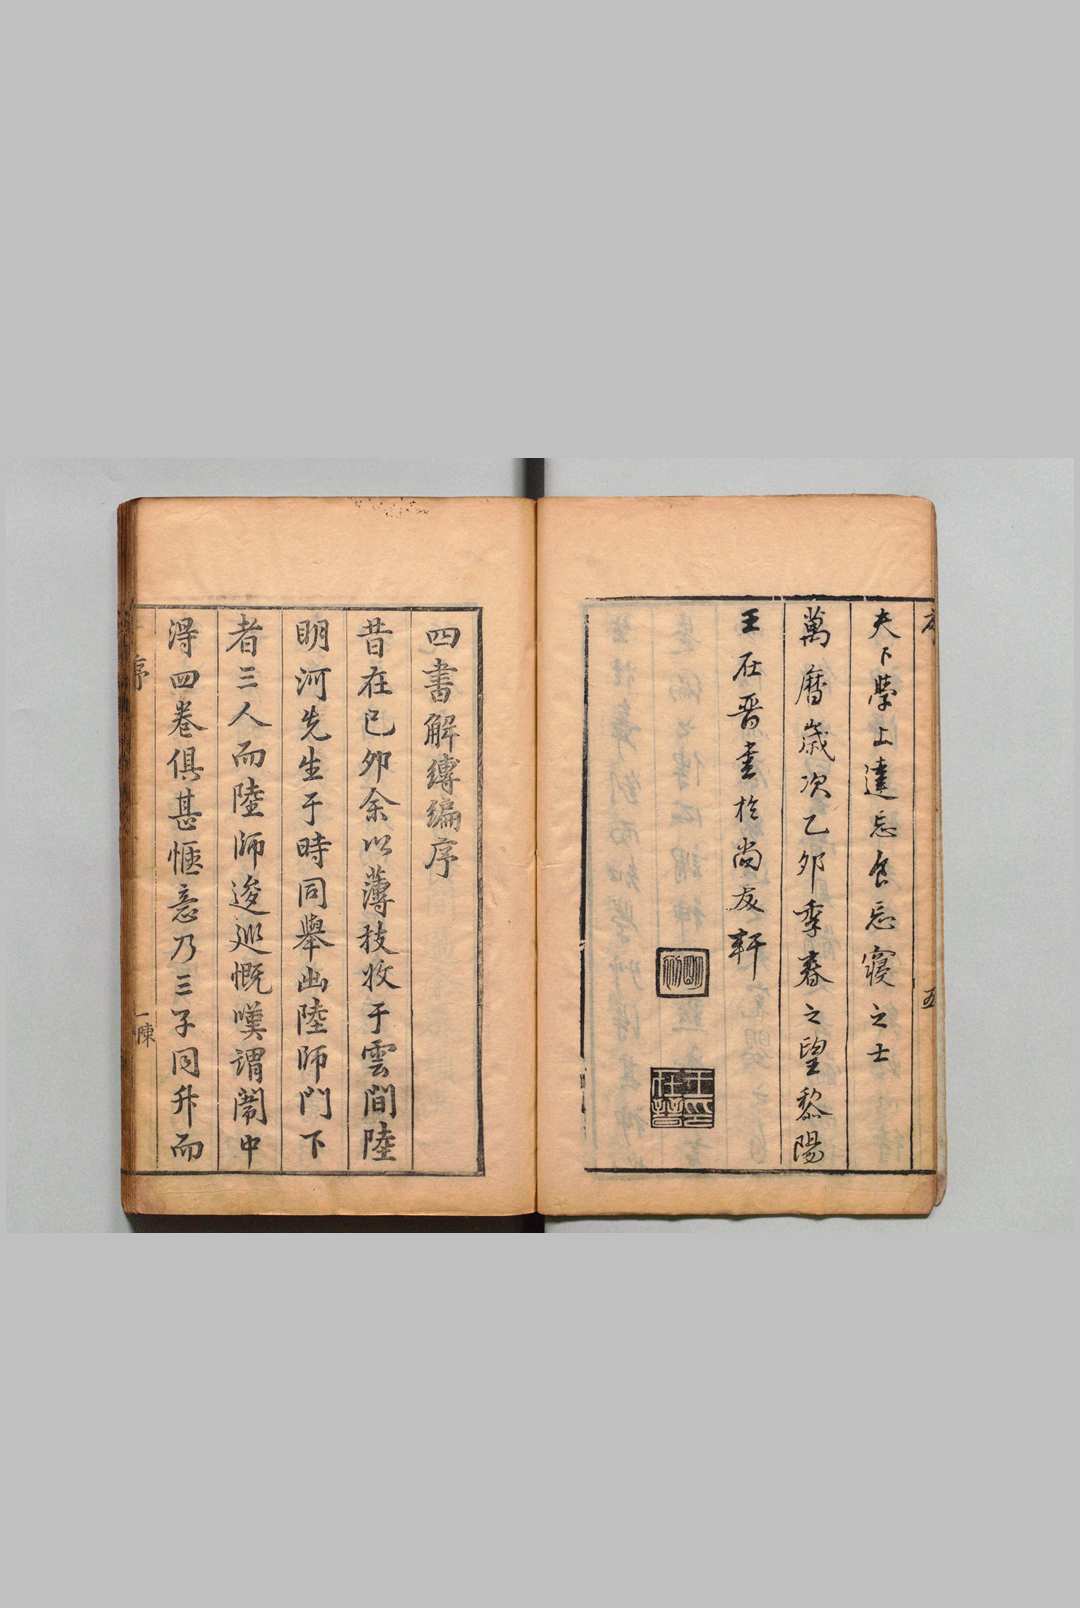 夫下學上達忘食忘寢之士
萬曆歲次乙卯季春之望黎陽
王在晉書於尚友軒
明初
王在晉印
五
四書解縛編序
昔在己卯余以薄技收于雲間陸
明河先生于時同舉出陸師門下
者三人而陸師逡巡慨嘆謂闈中
得四卷俱甚愜意乃三子同升而
序
一
陳